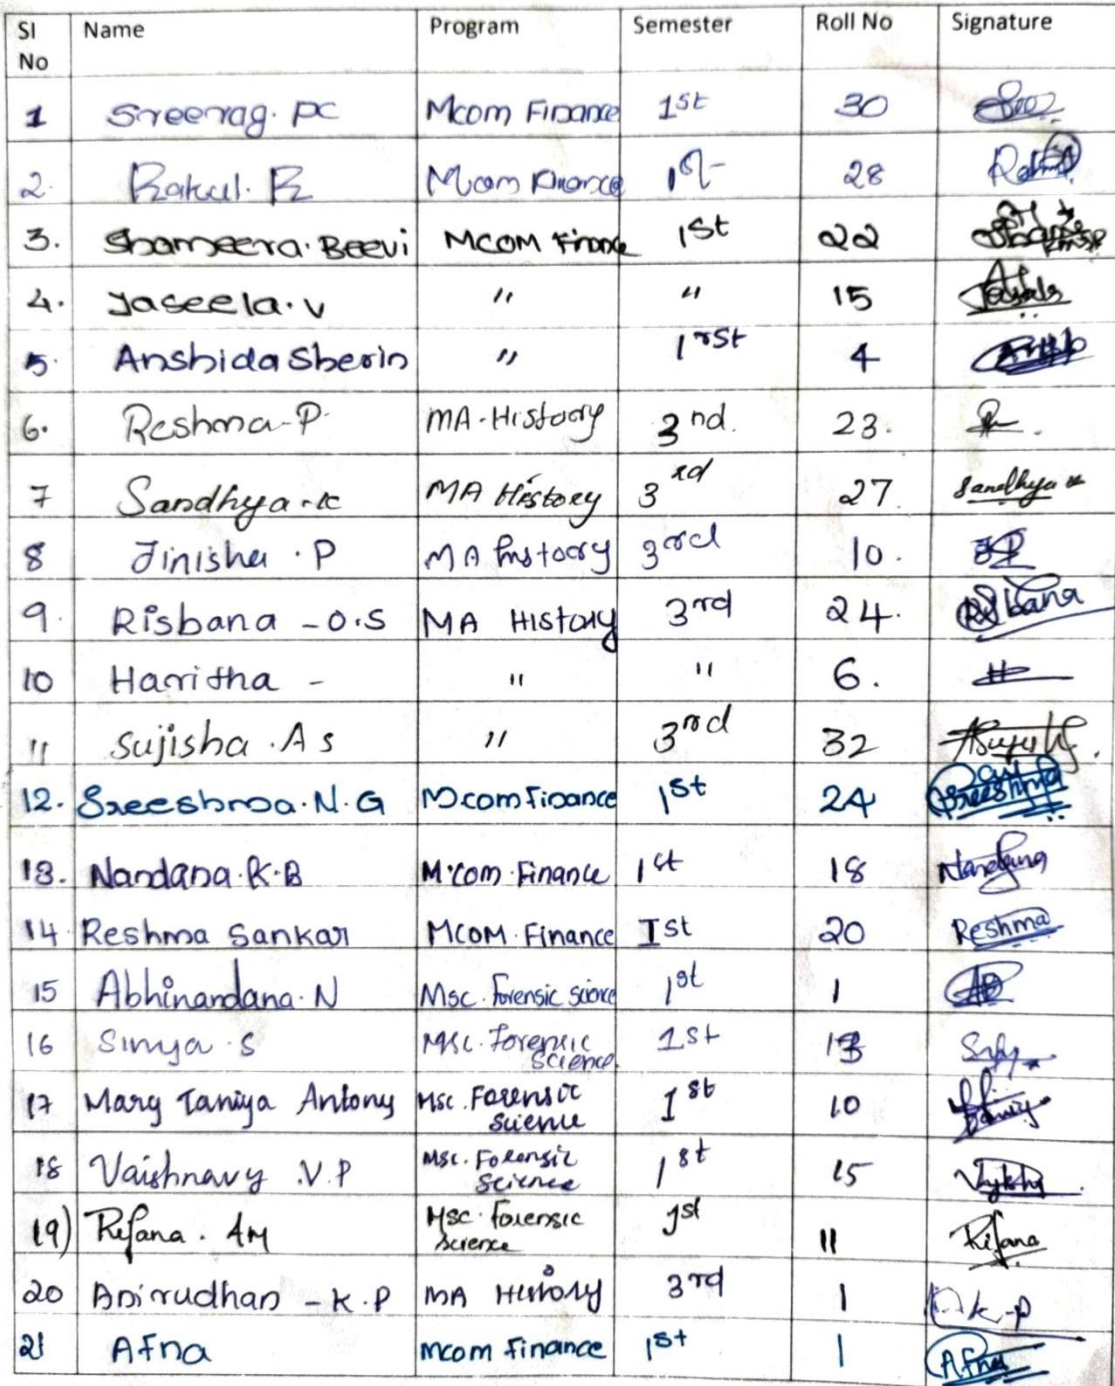 Sl No Name Program Semester Roll No Signature
1 Sreerag. PC Mcom Finance 1st 30
2. Rakul. R Mcom Finance 1st 28
3. Shameera. Beevi MCOM Finance 1st 22
4. Jaseela. V " " 15
5. Anshida Sherin " 1rst 4
6. Reshma-P MA-History 3nd. 23.
7 Sandhya.K MA History 3rd 27. Sandhya
8 Jinisha .P MA History 3rd 10.
9. Risbana -O.S MA History 3rd 24. Risbana
10 Haritha - " " 6.
11 Sujisha .A s " 3rd 32
12. Sreeshma.N.G Mcom Finance 1st 24 Sreeshma
13. Nandana.K.B M.com.Finance 1st 18 Nandana
14 Reshma Sankar MCOM.Finance Ist 20 Reshma
15 Abhinandana.N Msc.Forensic science 1st 1
16 Simya.S Msc.Forensic Science. 1st 13
17 Mary Taniya Antony Msc.Forensic Science 1st 10
18 Vaishnavy .V.P Msc.Forensic Science 1st 15
19) Rifana. AM Msc.Forensic Science 1st 11 Rifana
20 Anirudhan -K.P MA History 3rd 1 K-P
21 Afna mcom finance 1st 1 Afna